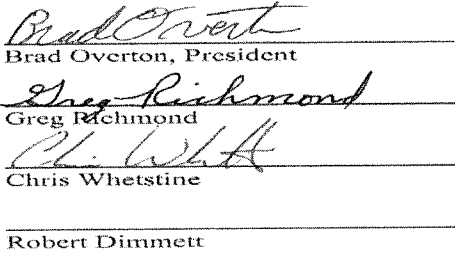 Brad Overton
Brad Overton, President
Greg Richmond
Greg Richmond
Chris Whetstine
Robert Dimmett